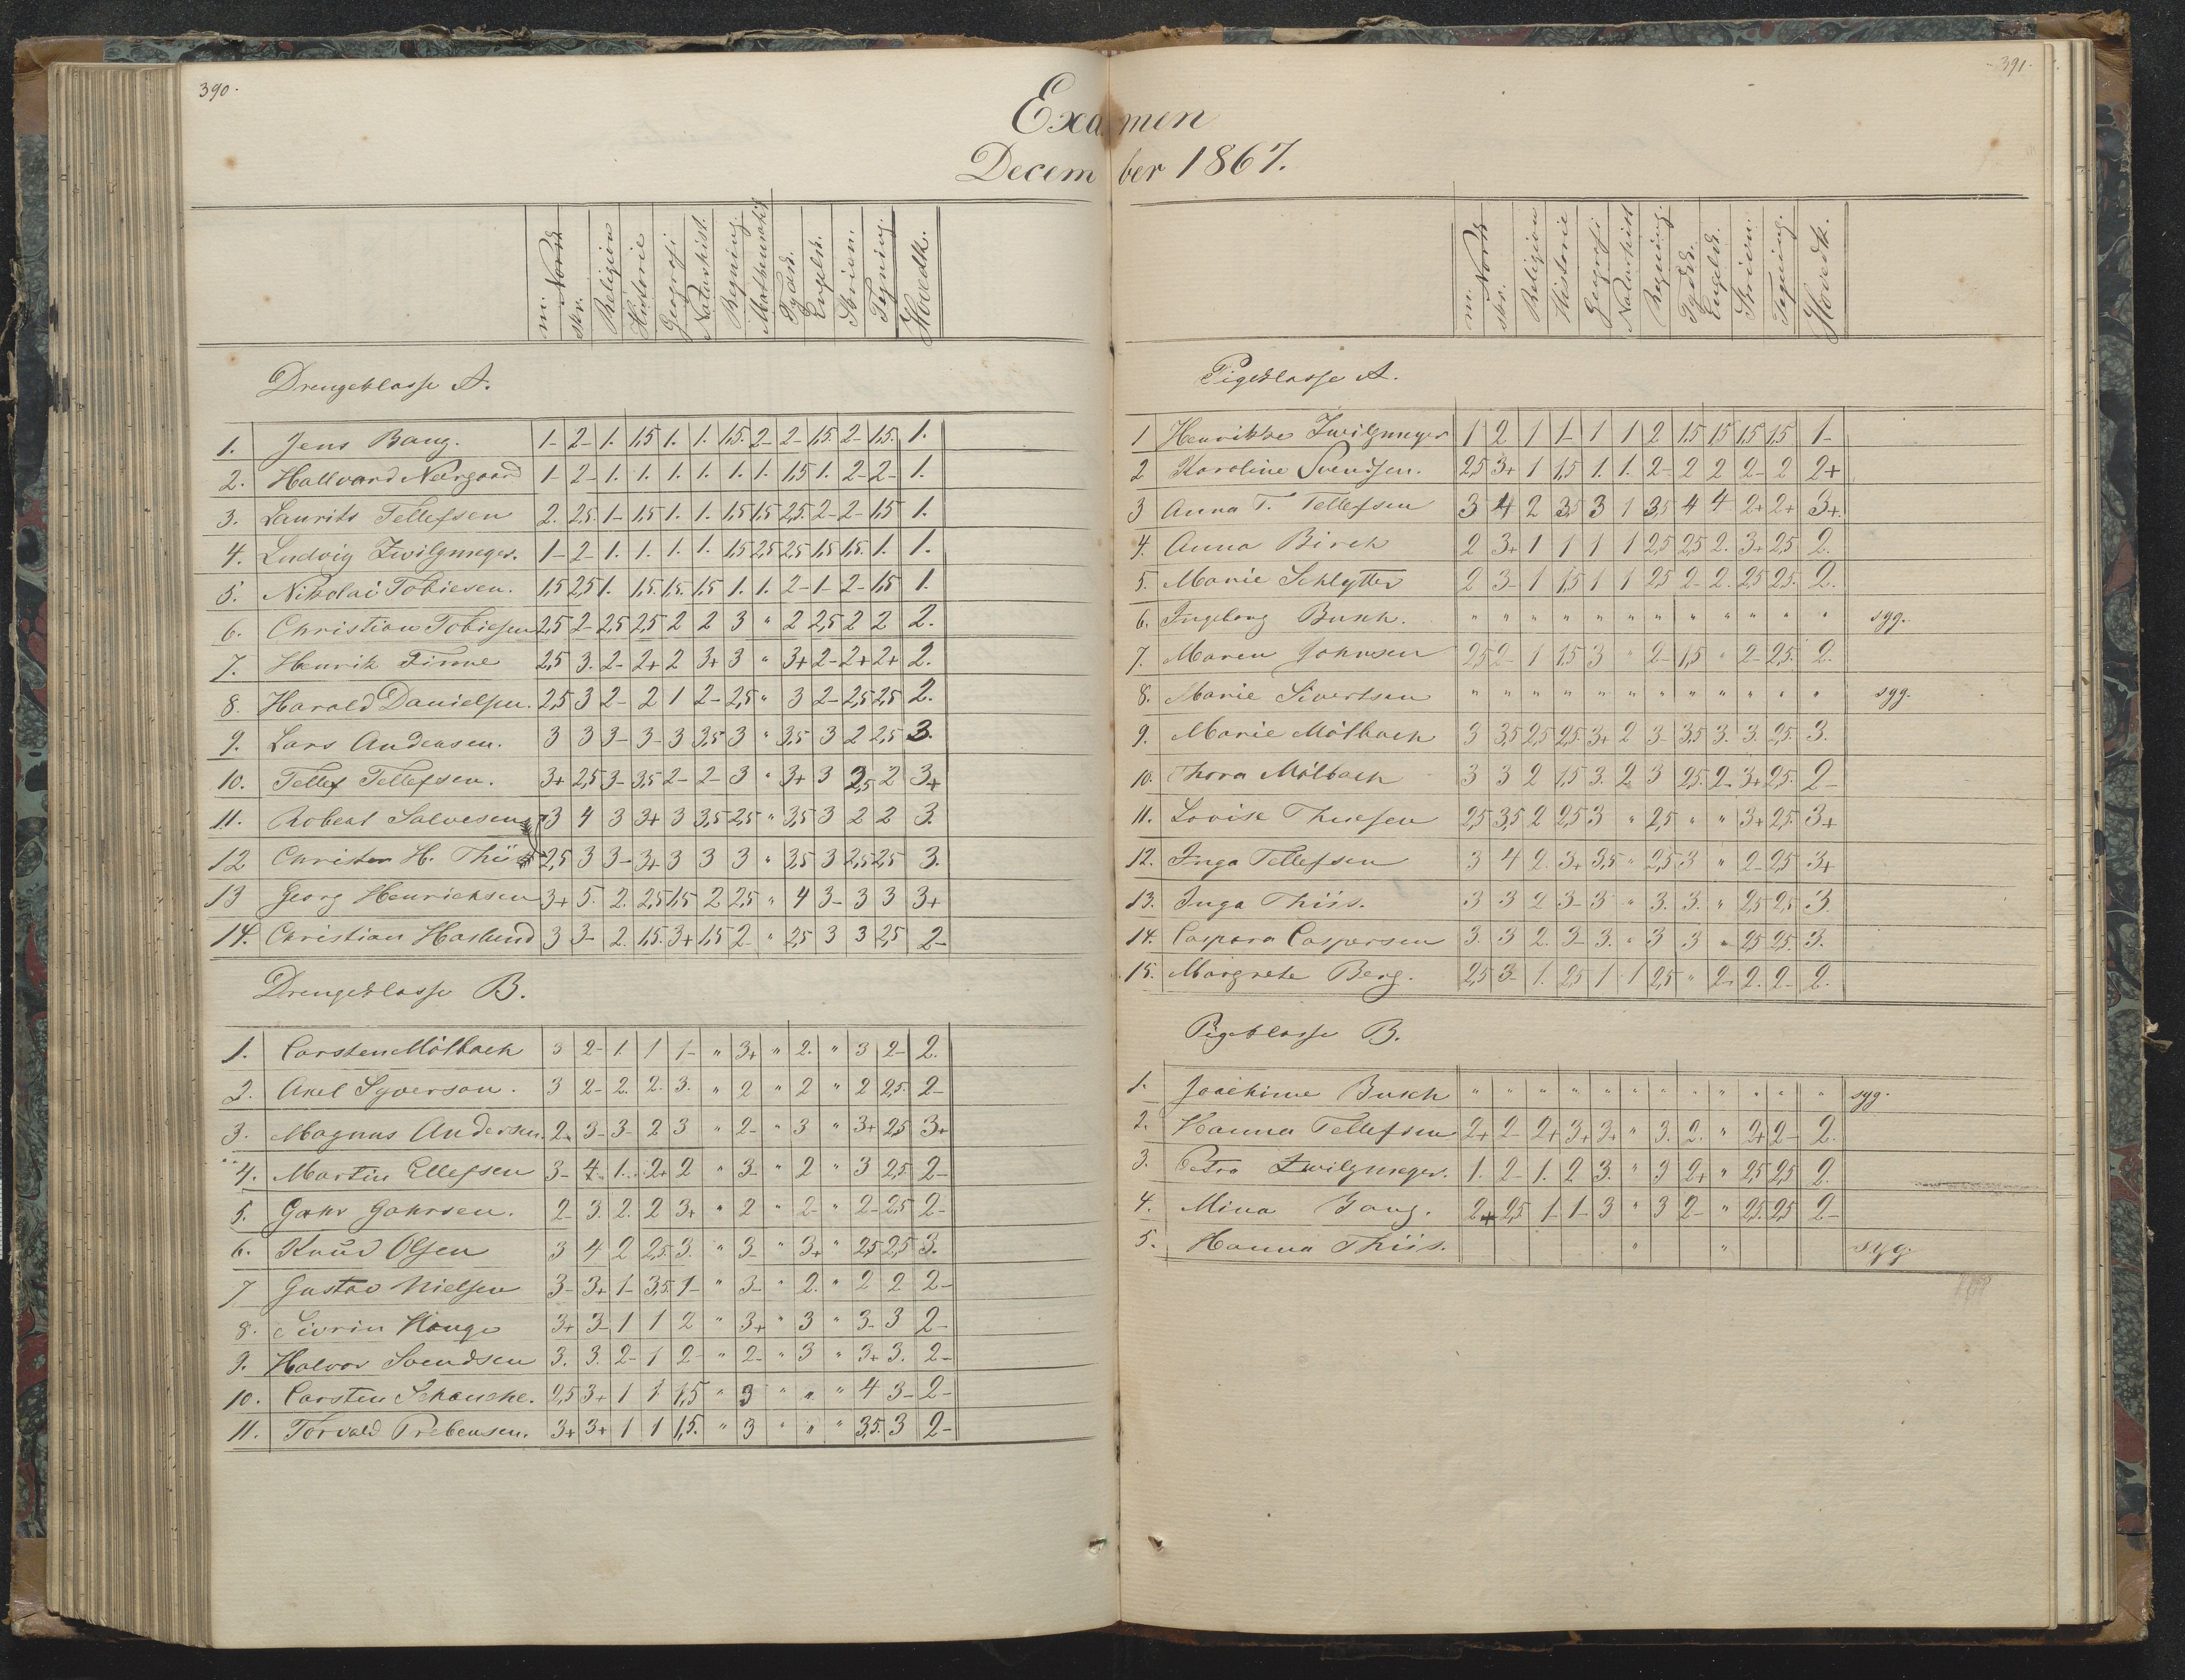 390.
391.
Examen
December 1867.
m. Norsk skr. Religion Historie Geografi Naturhist. Regning. Mathematik Tydsk. Engelsk. Skrivn. Tegning. Hovedk.
Drengeklasse A.
1. Jens Bang. 1- 2- 1. 1,5 1. 1. 1,5. 2- 2- 1,5. 2- 1,5. 1.
2. Hallvard Neergaard 1- 2- 1. 1. 1. 1. 1. 1. 1,5 1. 2- 2- 1.
3. Laurits Tellefsen 2. 2,5. 1- 1,5 1. 1. 1,5 1,5 2,5. 2- 2- 1,5 1.
4. Ludvig Zwilgmeyer. 1- 2- 1. 1. 1. 1. 1,5 2,5 2,5 1,5 1,5. 1. 1.
5. Nikolai Tobiesen. 1,5 2,5 1. 1,5. 1,5. 1,5 1. 1. 2- 1- 2- 1,5 1.
6. Christian Tobiesen 2,5 2- 2,5 2,5 2 2 3 " 2 2,5 2 2 2.
7. Henrik Finne 2,5 3. 2- 2+ 2 3+ 3 " 3+ 2- 2+ 2+ 2.
8. Harald Danielsen. 2,5 3 2- 2 1 2- 2,5 " 3 2- 2,5 2,5 2.
9. Lars Andensen. 3 3 3- 3- 3 3,5 3 " 3,5 3 2 2,5 3.
10. Tellef Tellefsen. 3+ 2,5 3- 3,5 2- 2- 3 " 3+ 3 2,5 2 3+
11. Robert Salvesen 3 4 3 3+ 3 3,5 2,5 " 3,5 3 2 2 3.
12 Christen H. Thiis 2,5 3 3- 3+ 3 3 3 " 3,5 3 2,5 2,5 3.
13 Georg Henrichsen 3+ 5. 2. 2,5 1,5 2 2,5 " 4 3- 3 3 3+
14. Christian Haslund 3 3- 2. 1,5. 3+ 1,5 2- " 2,5 3 3 2,5 2-
Drengeklasse B.
1. Carsten Mölbach 3 2- 1. 1 1- " 3+ " 2. " 3 2- 2.
2. Axel Syverson. 3 2- 2. 2. 3. " 2 " 2 " 2 2,5. 2-
3. Magnus Andersen. 2- 3- 3- 2 3 " 2- " 3 " 3+ 2,5 3+
4. Martin Ellefsen 3- 4. 1. 2+ 2 " 3- " 2 " 3 2,5 2-
5. Gahr Gahrsen. 2- 3. 2. 2 3+ " 2 " 2- " 2- 2,5 2-
6. Knud Olsen 3 4 2 2,5. 3. " 3- " 3+ " 2,5 2,5 3.
7 Gustav Nielsen 3- 3+ 1- 3,5. 1- " 3- " 2. " 2 2 2-
8. Sivrin Hauge 3+ 3- 1 1 2 " 3+ " 3 " 3- 3 2-
9. Halvor Svendsen 3. 3. 2- 1 2- " 2- " 3 " 3+ 3. 2-
10. Carsten Schanche. 2,5 3+ 1 1 1,5 " 3 " " " 4 3- 2-
11. Torvald Prebensen. 3+ 3+ 1 1 1,5. " 3 " " " 3,5. 3 2-
m. Norsk skr. Religion Historie Geografi Naturhist Regning. Tydsk. Engelsk. Skrivn. Tegning. Hovedk.
Pigeklasse A.
1 Henrikke Zwilgmeyer 1 2 1 1- 1 1 2 1,5 1,5 1,5 1,5 1-
2 Karoline Svendsen. 2,5 3+ 1 1,5 1. 1. 2- 2 2 2- 2 2+
3 Anna T. Tellefsen 3 4 2 3,5 3 1 3,5 4 4 2+ 2+ 3+.
4. Anna Birch 2 3+ 1 1 1 1 2,5 2,5 2. 3+ 2,5 2.
5. Marie Schlytter 2 3- 1 1,5 1 1 2,5 2- 2. 2,5 2,5. 2.
6. Ingeborg Busch. " " " " " " " " " " " " syg.
7. Maren Johnsen 2,5 2- 1 1,5 3 " 2- 1,5 " 2- 2,5. 2.
8. Marie Sivertsen " " " " " " " " " " " " syg.
9. Marie Mölbach 3 3,5 2,5 2,5. 3+ 2 3- 3,5 3. 3. 2,5. 3.
10. Thora Mölbach 3 3 2 1,5 3. 2 3 2,5. 2- 3+ 2,5. 2-
11. Lovise Thuesen 2,5 3,5 2 2,5 3 " 2,5 " " 3+ 2,5. 3+
12. Inga Tellefsen 3 4 2. 3+ 3,5 " 2,5 3 " 2- 2,5 3+
13. Inga Thiis. 3 3 2 3- 3 " 3. 3. " 2,5 2,5 3.
14. Caspara Caspersen 3. 3 2. 3- 3. " 3 3 " 2,5 2,5. 3.
15. Margrete Berg. 2,5 3- 1. 2,5 1 1 2,5 " 2- 2. 2- 2.
Pigeklasse B.
1. Joachime Busch " " " " " " " " " " " " syg.
2. Hanna Tellefsen 2+ 2- 2+ 3+ 3+ " 3. 2. " 2+ 2- 2.
3. Petra Zwilgmeyer. 1. 2- 1. 2 3. " 3 2+ " 2,5 2,5 2.
4. Mina Bang. 2+ 2,5 1- 1- 3 " 3 2- " 2,5. 2,5 2-
5. Hanna Thiis. " " syg.